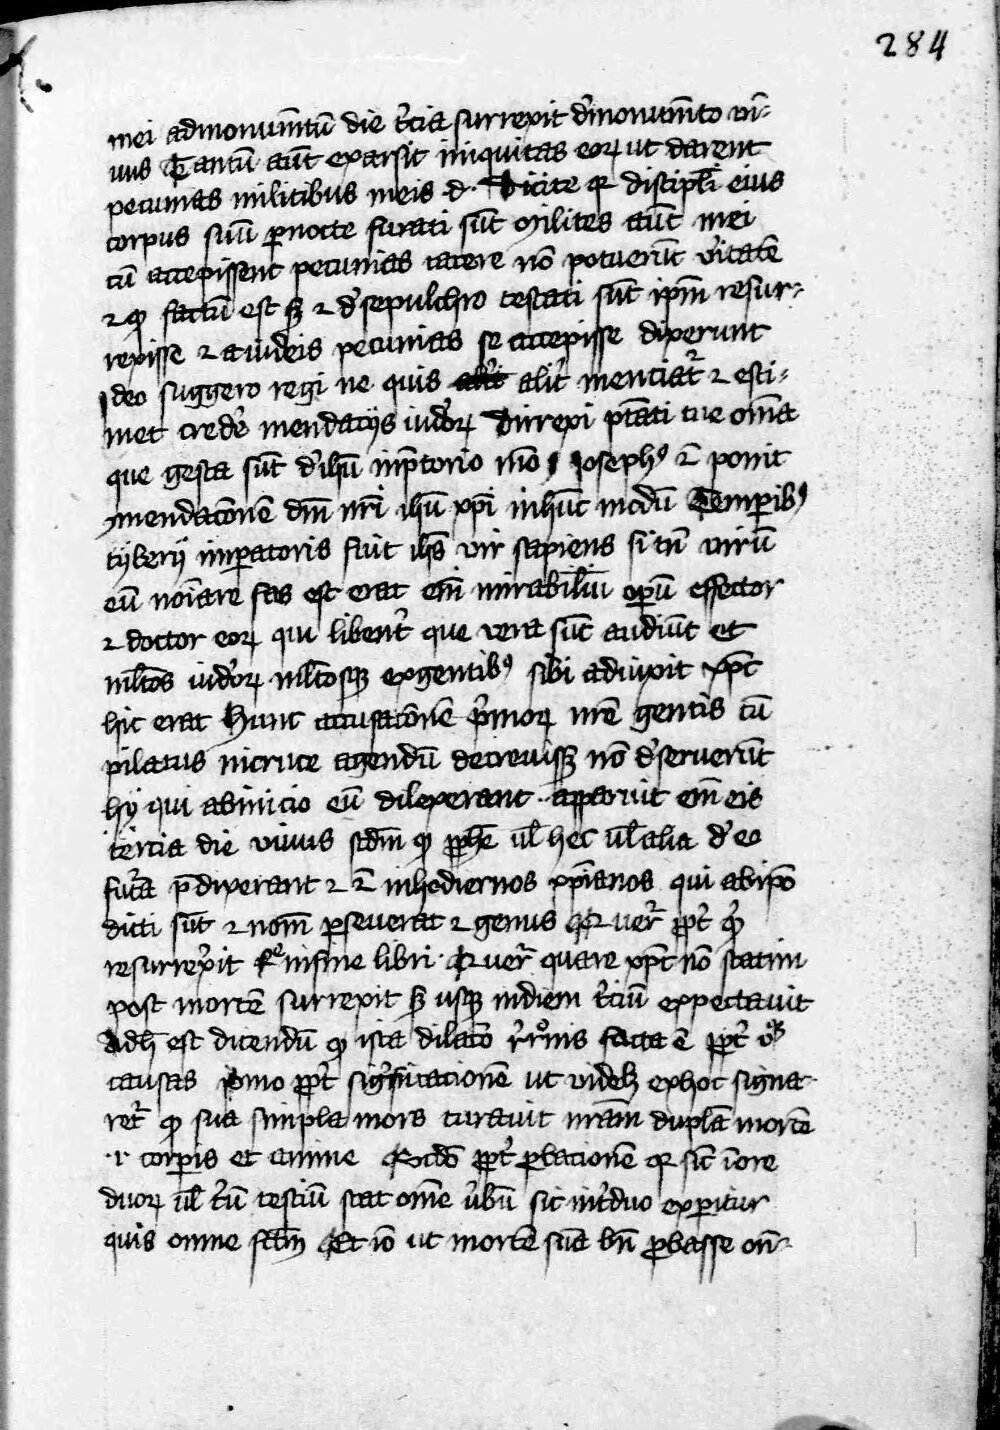 284
mei admonumētū die t̓cia surrexit d̓monumēto vi-
uus Tantū aūt exarsit iniquitas eoꝝ ut darent
pecunias militibus meis .d. Dicite qꝛ discipl̓i eius
corpus suū ꝑnocte furati sūt Milites aūt mei
cū accepissent pecunias tacere nō potuerūt v̓itatē
⁊ qꝫ factū est sꝫ ⁊ d̓sepulchro testati sūt ip̄m resur-
rexisse ⁊ a iudeis pecunias se accepisse dixerunt
Ideo suggero regi ne quis alit̓ menciat̓ ⁊ esti-
met cred̓e mendacijs iudeoꝝ Direxi ptāti tue om̄a
que gesta sūt d̓ ih̄u in p̄torio meo Iosephꝰ ⁊̄ ponit
cōmendacōnem dn̄i nr̄i ih̄u xp̄i inhūc modū Temporibꝰ
tyberij imꝑatoris fuit ih̄s vir sapiens si tn̄ virū
eū noīare fas est erat em̄ mirabiliū oꝑū effector
⁊ doctor eoꝝ qui libent̓ que vera sūt audiūt et
ml̄tos iudeoꝝ ml̄tosqꝫ exgentibꝰ sibi adiuxit xp̄c
hic erat Hunc accusacōne p̓moꝝ nr̄e gentis cū
pilatus incruce agendū decreuissꝫ nō d̓seruerūt
hij qui abinicio eū dilexerant apparuit em̄ eis
tercia die viuus scdm̄ qꝫ ꝓphē ul̄ hec ul̄ alia d̓ eo
fut̓a p̄dixerant ⁊ ⁊̄ inhodiernos xp̄ianos qui abip̄o
dicti sūt ⁊ nom̄ ꝑseuerat ⁊ genus Quer̓ ꝓpt̓
resurrexit infine libri Quer̓ quare xp̄c nō statim
post mortē surrexit sꝫ usqꝫ indiem t̓ciū expectauit
Adh̄ est dicendū qꝫ ista dilacō facta ē ꝓpt̓
causas p̓mo ꝓpt̓ sig̓ficacionē ut videlꝫ exhoc signa-
ret̓ qꝫ sua simpla mors curauit nr̄am duplā mortē
.i. corꝑis et anime Scd̄o ꝓpt̓ ꝓbacionē qꝛ sic̄ īore
duoꝝ ul̄ t̓ū testiū stat om̄e v̓bū sic int̓duo exꝑitur
quis omne fc̄m Et iō ut mortē suā bn̄ ꝓbasse on̄-